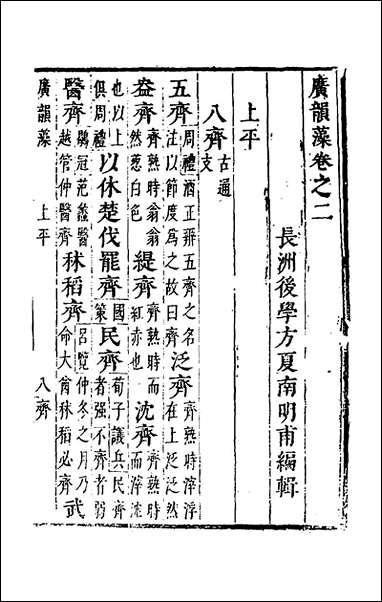 廣韻藻卷之二
長洲後學方夏南明甫編輯
上平
八齊古通支
五齊周禮酒正辨五齊之名注以節度爲之故曰齊泛齊齊熟時滓浮在上泛泛然
盎齊齊熟時翁翁然葱白色緹齊齊熟時而紅赤也沈齊齊熟時而滓沈
也以上俱周禮以休楚伐罷齊國策民齊荀子議兵民齊者强不齊者弱
醫齊鶡冠范蠡醫越管仲醫齊秫稻齊呂覽仲冬之月乃命大酋秫稻必齊武
廣韻藻 上平 八齊